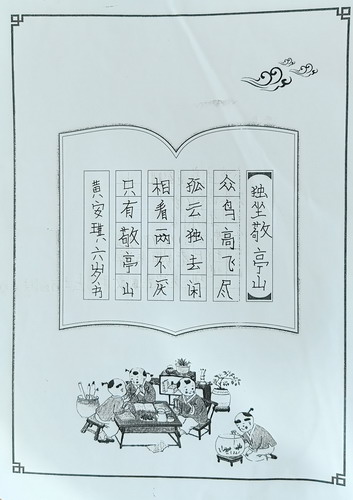 独坐敬亭山
众鸟高飞尽
孤云独去闲
相看两不厌
只有敬亭山
黄安琪六岁书